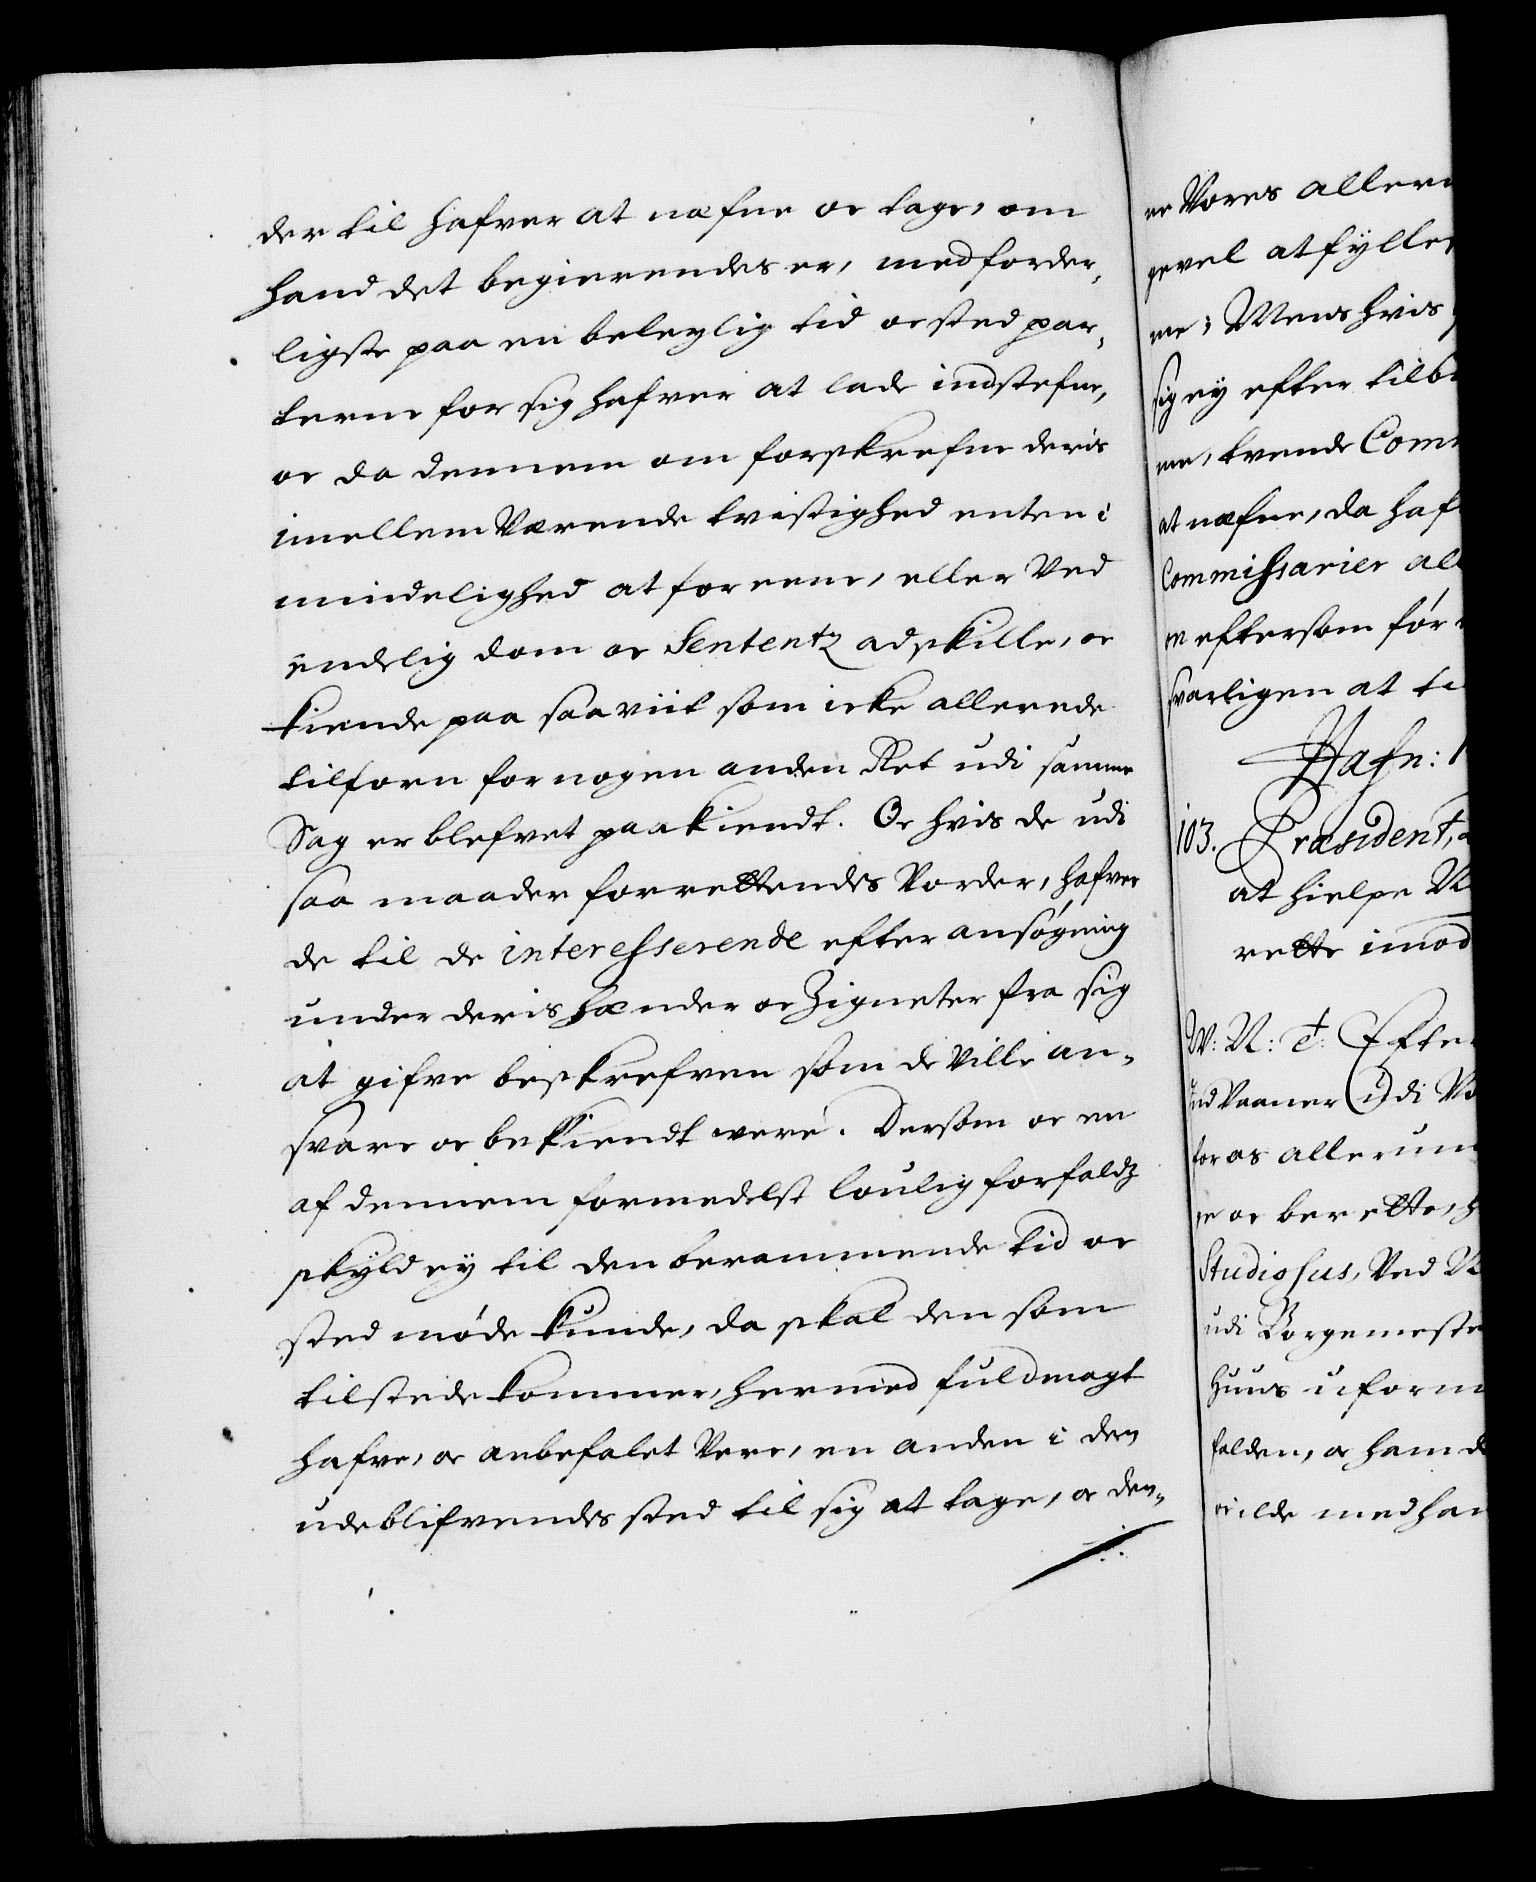 der til hafver at nefne oc tage, om
hand det begierendes er, med forder,
ligste paa en beleylig tid oc sted par,
terne for sig hafver at lade indstefne,
oc da dennem om forskrefne deris
imellem Værende tvistighed enten i
mindelighed at foreene, eller Ved
endelig dom oc Sententz adskille, oc
kiende paa saa viit som icke allerede
tilforn for nogen anden Ret udi samme
Sag er blefvet paakiendt. Oc hvis de udi
saa maader forrettendes Vorder, hafver
de til de interesserende efter ansøgning
under deris hænder oc Zigneter fra sig
at gifve beskrefven som de Ville an-
svare oc bekiendt were. Dersom oc en
af dennem formedelst loulig forfaldz
skyld ey til den berammende tid oc
sted møde kunde, da skal den som
tilstede kommer, hermed fuldmagt
hafve, oc anbefalet Vere, en anden i den
udeblifvendes sted til sig at tage, oc den-
re Vores aller
gevel at fylle
me; Mens hvis
sig ey efter
me, tvende Com
at nefne, da haf
Commissarier al
en eftersom før
svarligen at
Hafn:
103. Præsident,
at hielpe
rette imod
W: N: C: Efter
Indvaaner udi
for os allerun
ge oc berette, h
Studiosus, Ved
udi Borgemeste
Huus uform
falden, oc ham
ilde medhan